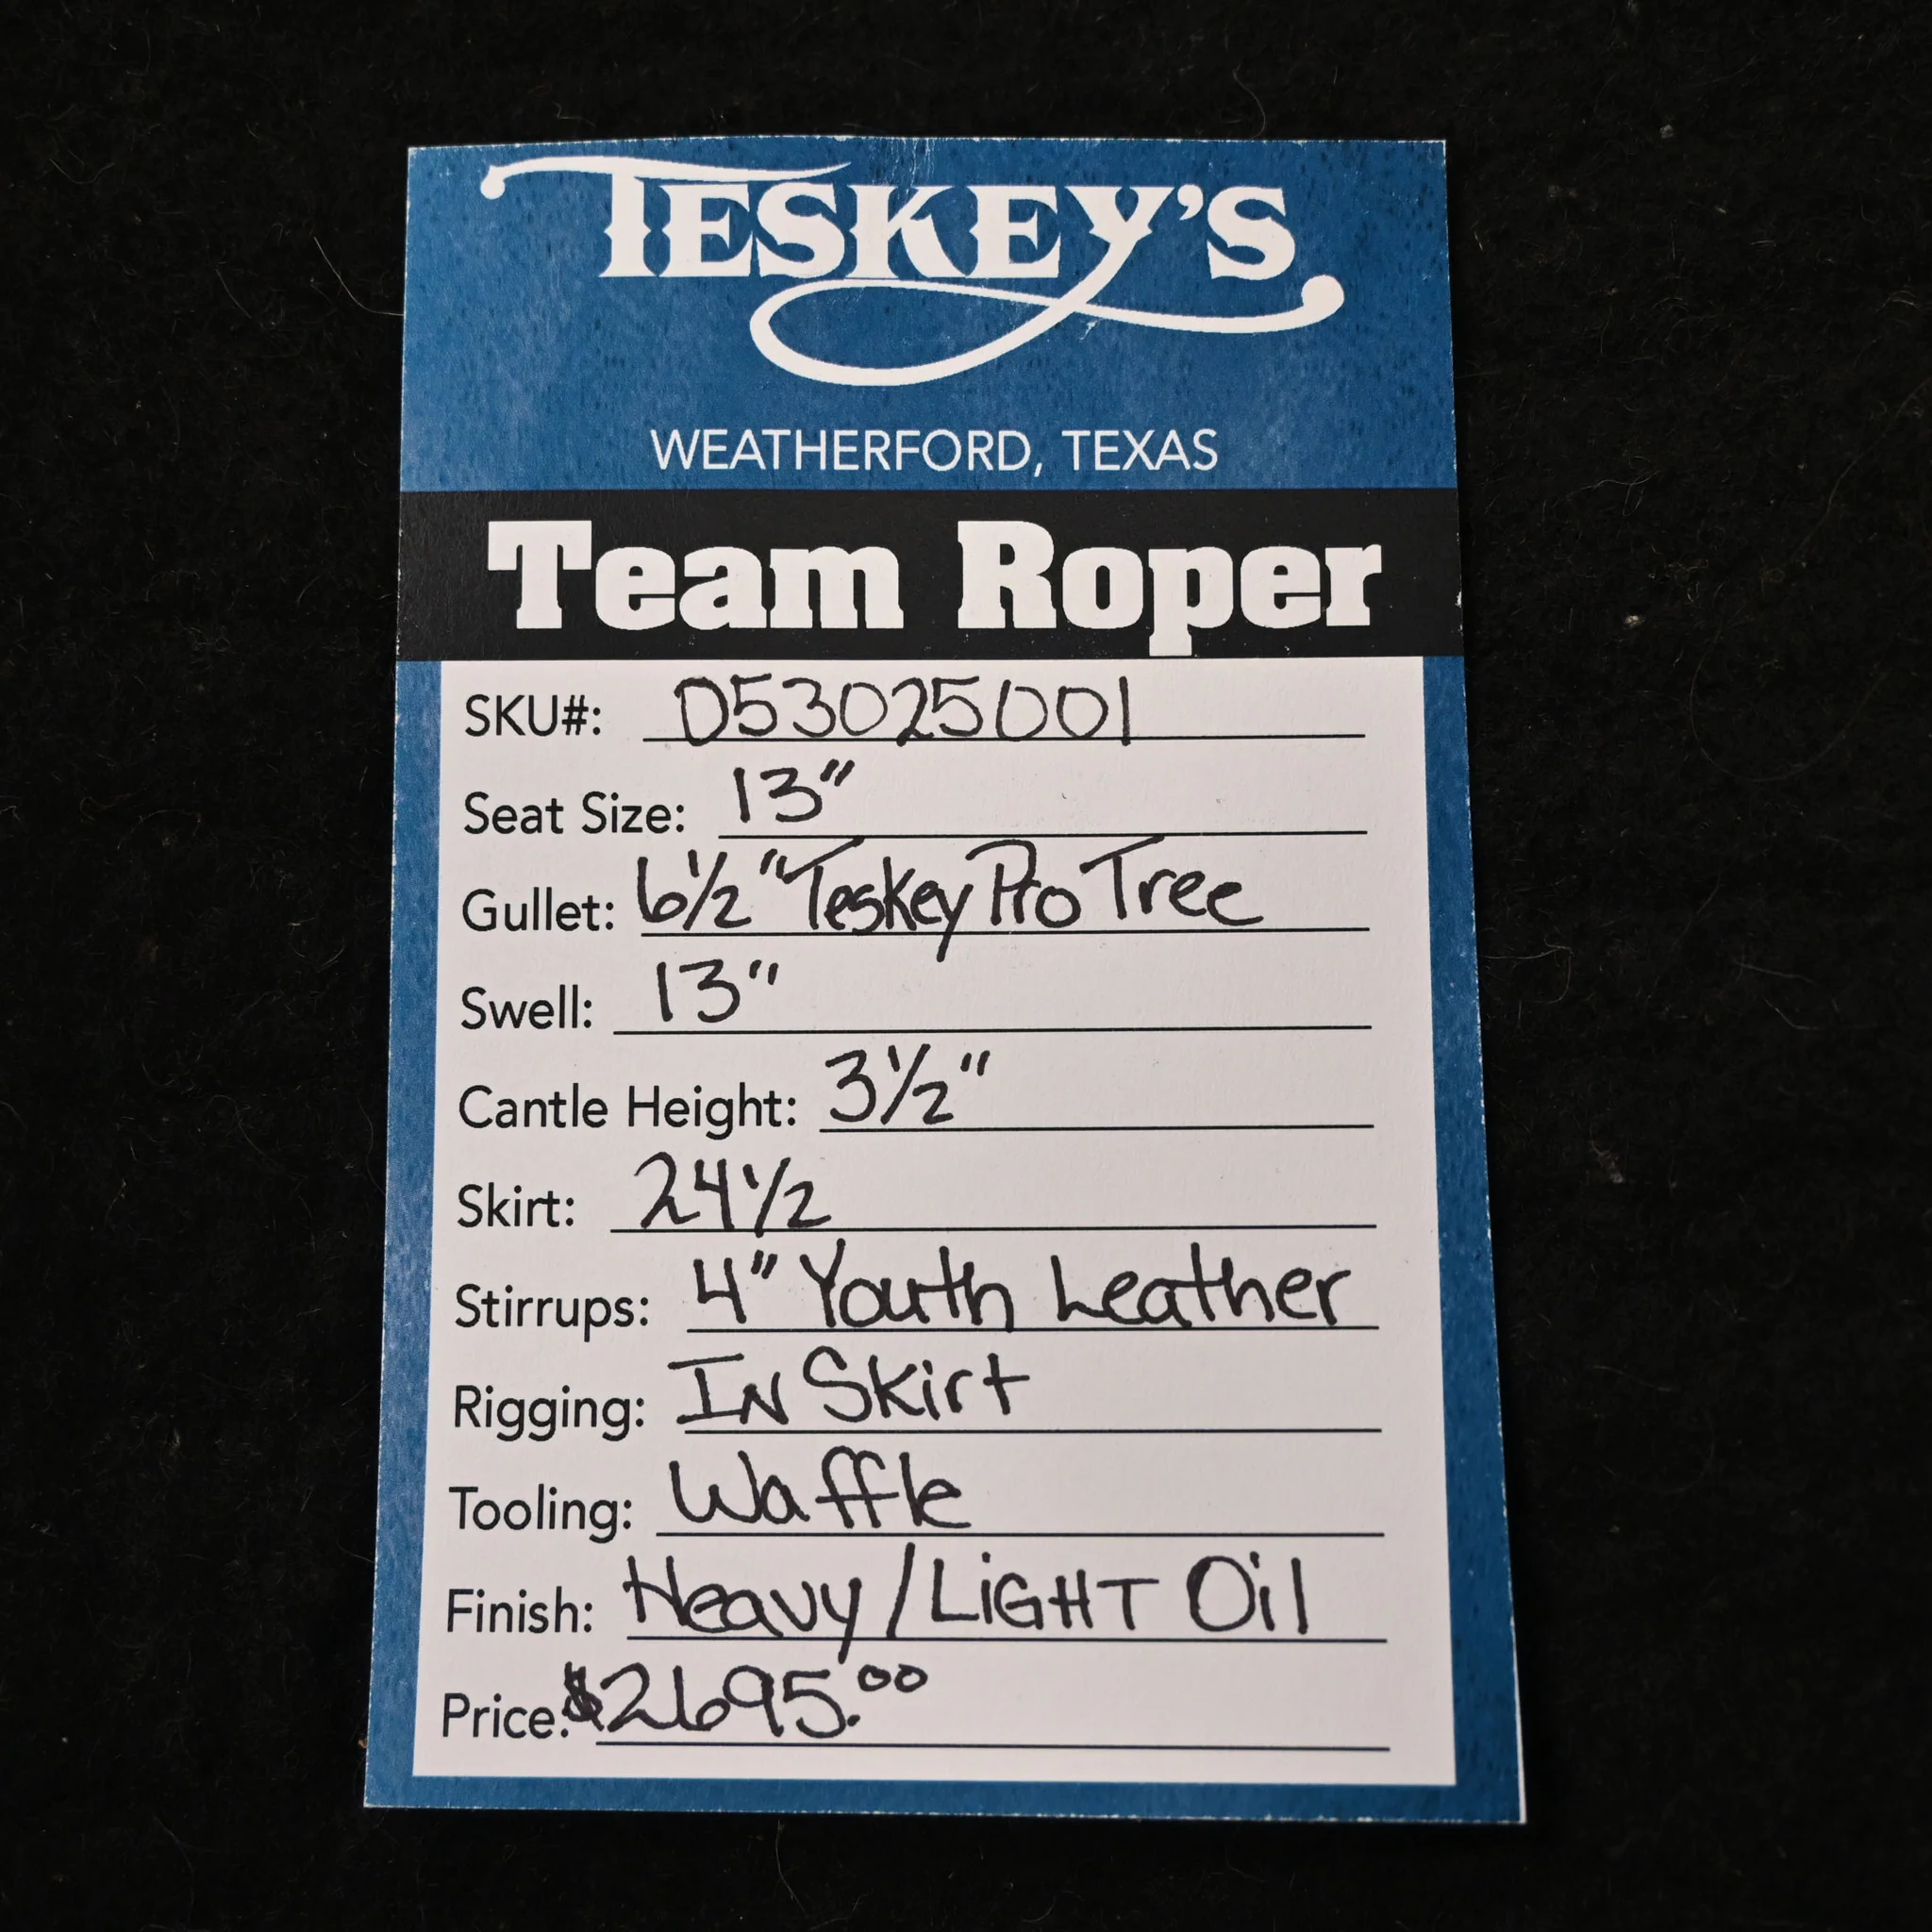 TESKEY'S
WEATHERFORD, TEXAS
Team Roper
SKU#: 053025001
Seat Size: 13"
Gullet: 6½" Teskey Pro Tree
Swell: 13"
Cantle Height: 3½"
Skirt: 24½
Stirrups: 4" Youth Leather
Rigging: IN Skirt
Tooling: Waffle
Finish: Heavy/LiGHT Oil
Price: $2695.00